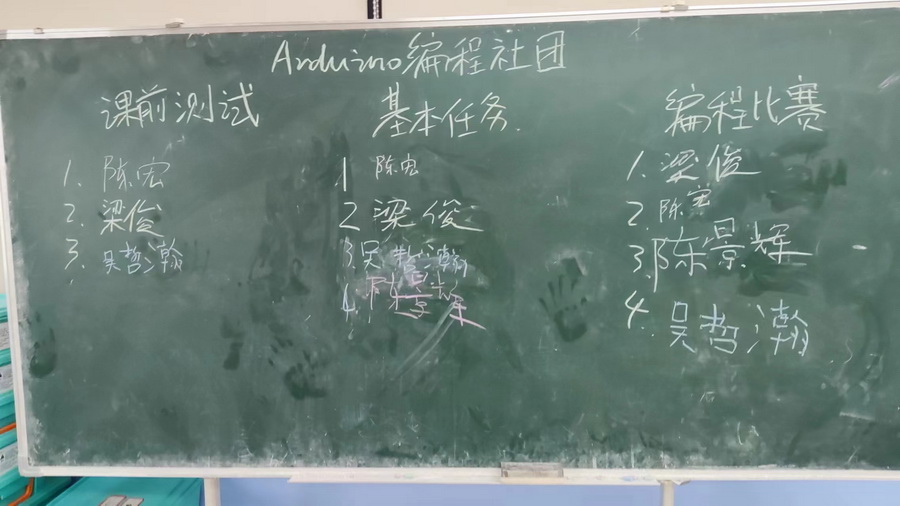 Arduino编程社团
课前测试
1. 陈宏
2. 梁俊
3. 吴哲瀚
基本任务.
1 陈宏
2 梁俊
3 吴哲瀚
4. 陈景辉
编程比赛
1. 梁俊
2. 陈宏
3. 陈景辉
4. 吴哲瀚